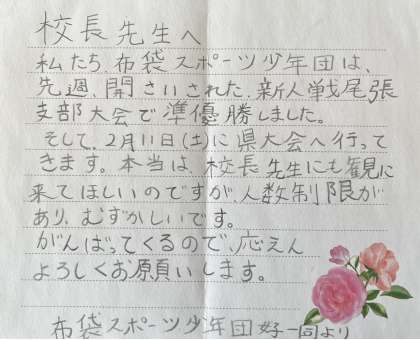 校長先生へ
私たち、布袋スポーツ少年団は、
先週、開さいされた、新人戦尾張
支部大会で準優勝しました。
そして、2月11日(土)に県大会へ行って
きます。本当は、校長先生にも観に
来てほしいのですが、人数制限が
あり、むずかしいです。
がんばってくるので、応えん
よろしくお願いします。
布袋スポーツ少年団 好一同より